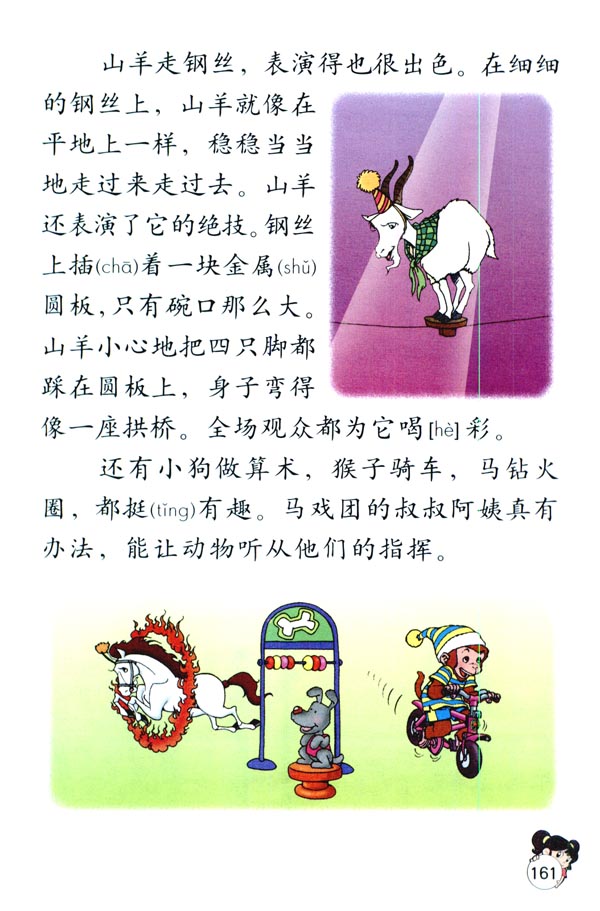 山羊走钢丝，表演得也很出色。在细细
的钢丝上，山羊就像在
平地上一样，稳稳当当
地走过来走过去。山羊
还表演了它的绝技。钢丝
上插(chā)着一块金属(shǔ)
圆板，只有碗口那么大。
山羊小心地把四只脚都
踩在圆板上，身子弯得
像一座拱桥。全场观众都为它喝[hè]彩。
还有小狗做算术，猴子骑车，马钻火
圈，都挺(tǐng)有趣。马戏团的叔叔阿姨真有
办法，能让动物听从他们的指挥。
161